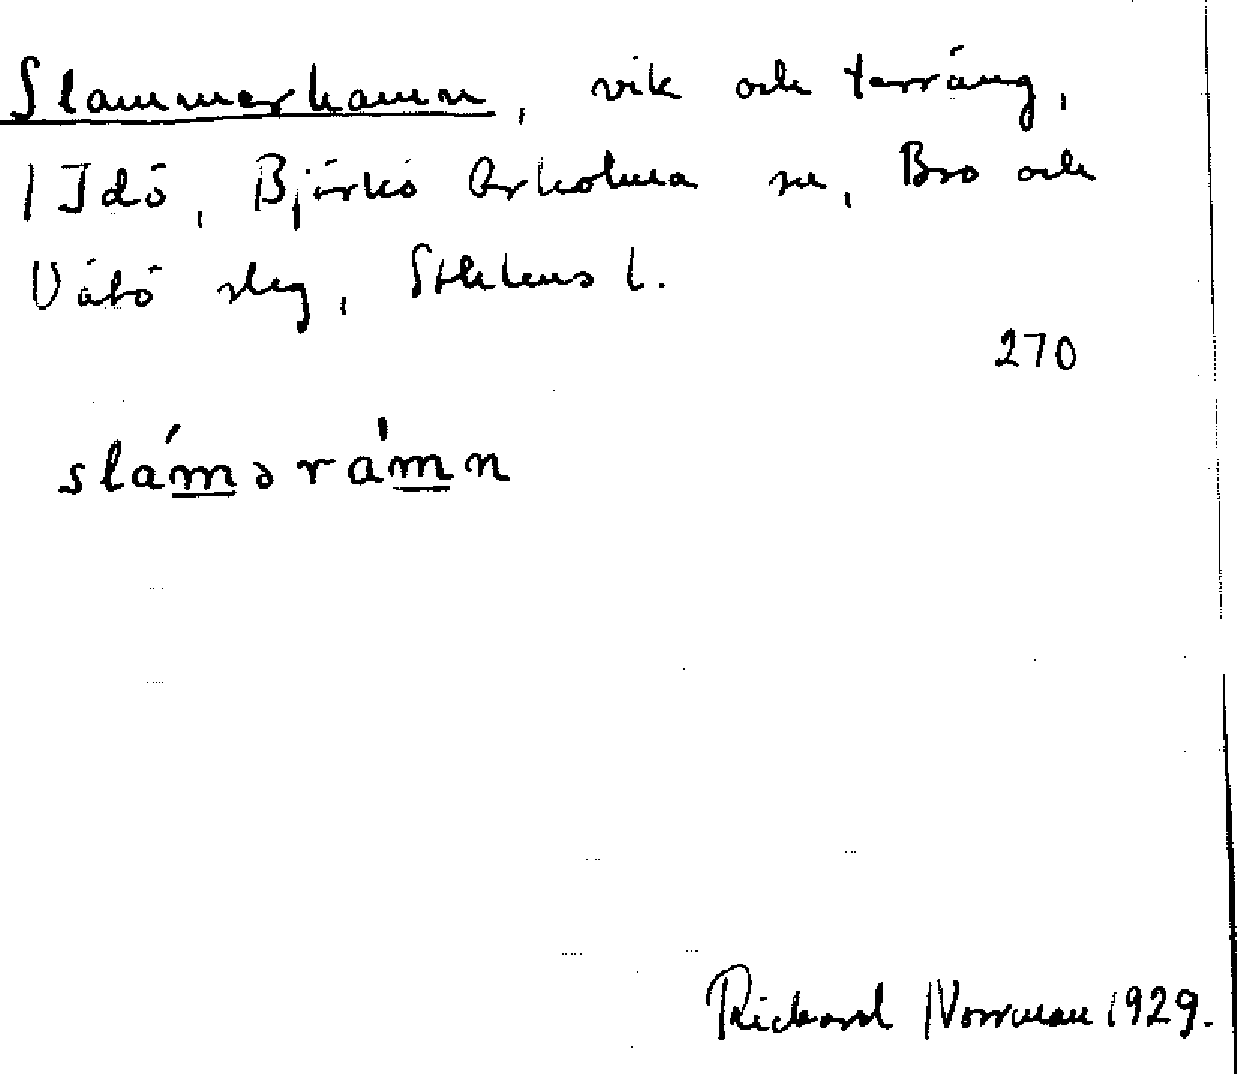 Slammerhamn, vik och terräng,
Idö, Björkö Arholma sn, Bro och
Vätö slag, Sthlms l.
270
slámərámn
Rickard Norrman 1929.